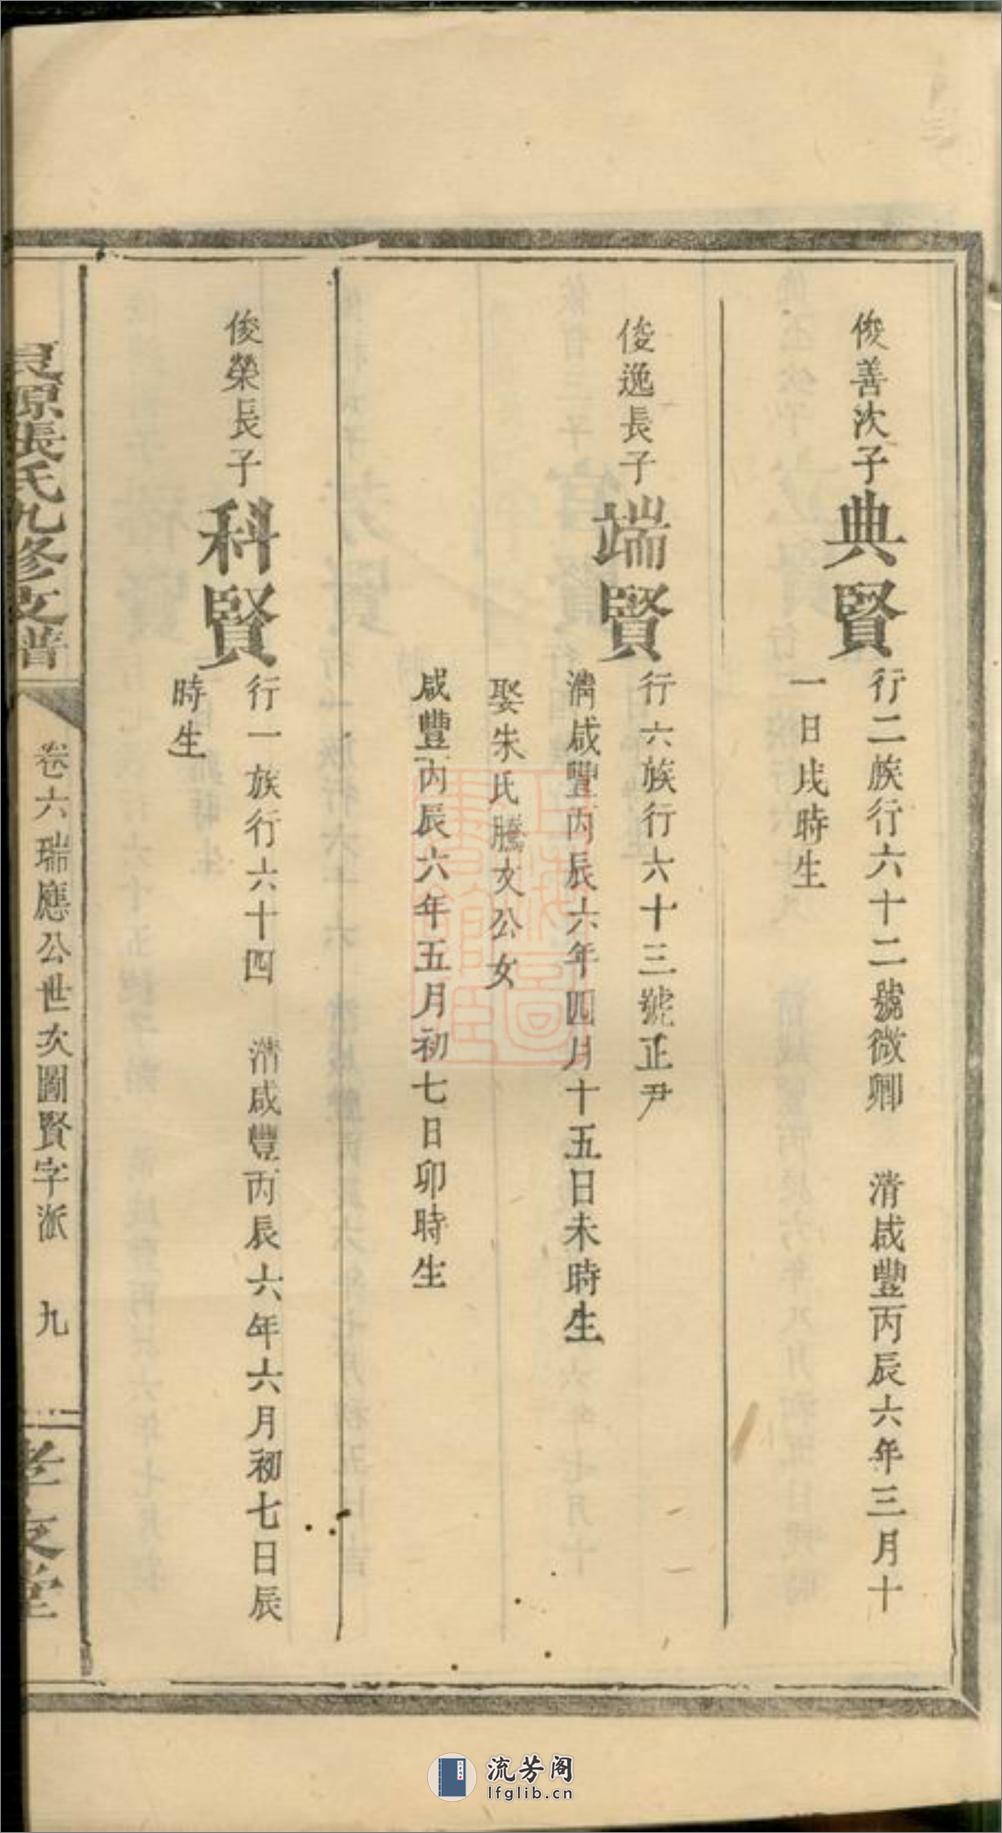 俊善次子典賢
行二族行六十二號微卿 清咸豐丙辰六年三月十
一日戌時生
俊逸長子端賢
行六族行六十三號正尹
清咸豐丙辰六年四月十五日未時生
娶朱氏騰文公女
咸豐丙辰六年五月初七日卯時生
俊榮長子科賢
行一族行六十四 清咸豐丙辰六年六月初七日辰
時生
良原張氏九修支譜
卷六瑞應公世次圖賢字派 九
孝友堂
流芳阁
lfglib.cn